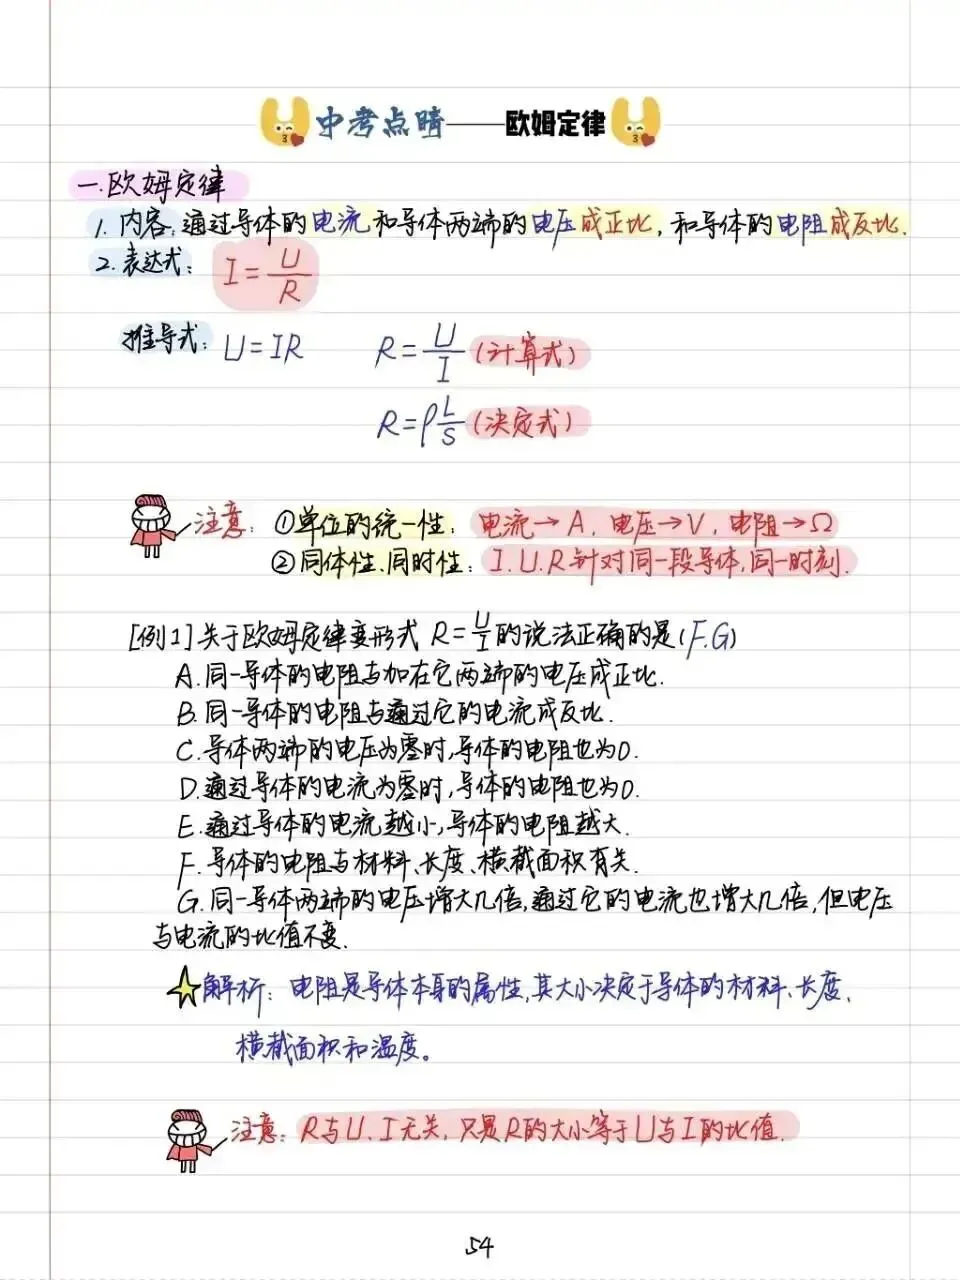 中考点晴——欧姆定律
一.欧姆定律
1. 内容:通过导体的电流和导体两端的电压成正比,和导体的电阻成反比.
2.表达式: I=U/R
推导式: U=IR R=U/I (计算式)
R=ρL/S (决定式)
注意: ①单位的统一性: 电流→A, 电压→V, 电阻→Ω
②同体性、同时性: I.U.R针对同一段导体,同一时刻.
[例1]关于欧姆定律变形式 R=U/I的说法正确的是(F.G)
A.同一导体的电阻与加在它两端的电压成正比.
B.同一导体的电阻与通过它的电流成反比.
C.导体两端的电压为零时,导体的电阻也为0.
D.通过导体的电流为零时,导体的电阻也为0.
E.通过导体的电流越小,导体的电阻越大.
F.导体的电阻与材料、长度、横截面积有关.
G.同一导体两端的电压增大几倍,通过它的电流也增大几倍,但电压
与电流的比值不变.
解析: 电阻是导体本身的属性,其大小决定于导体的材料、长度、
横截面积和温度。
注意: R与U、I无关,只是R的大小等于U与I的比值.
54